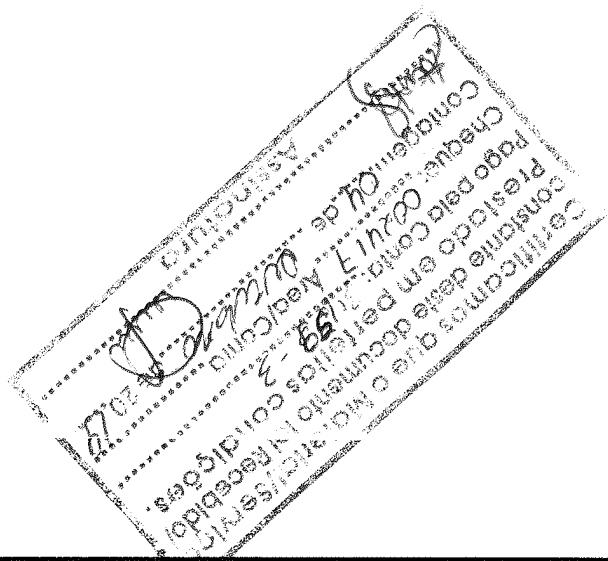 Certificamos que o Material/serviço
constante deste documento foi Recebido/
Prestado em perfeitas condições.
Pago pela Conta: 3199-3
Cheque: 002417 Área/Conta
Contagem 04 de outubro 2019
Assinatura